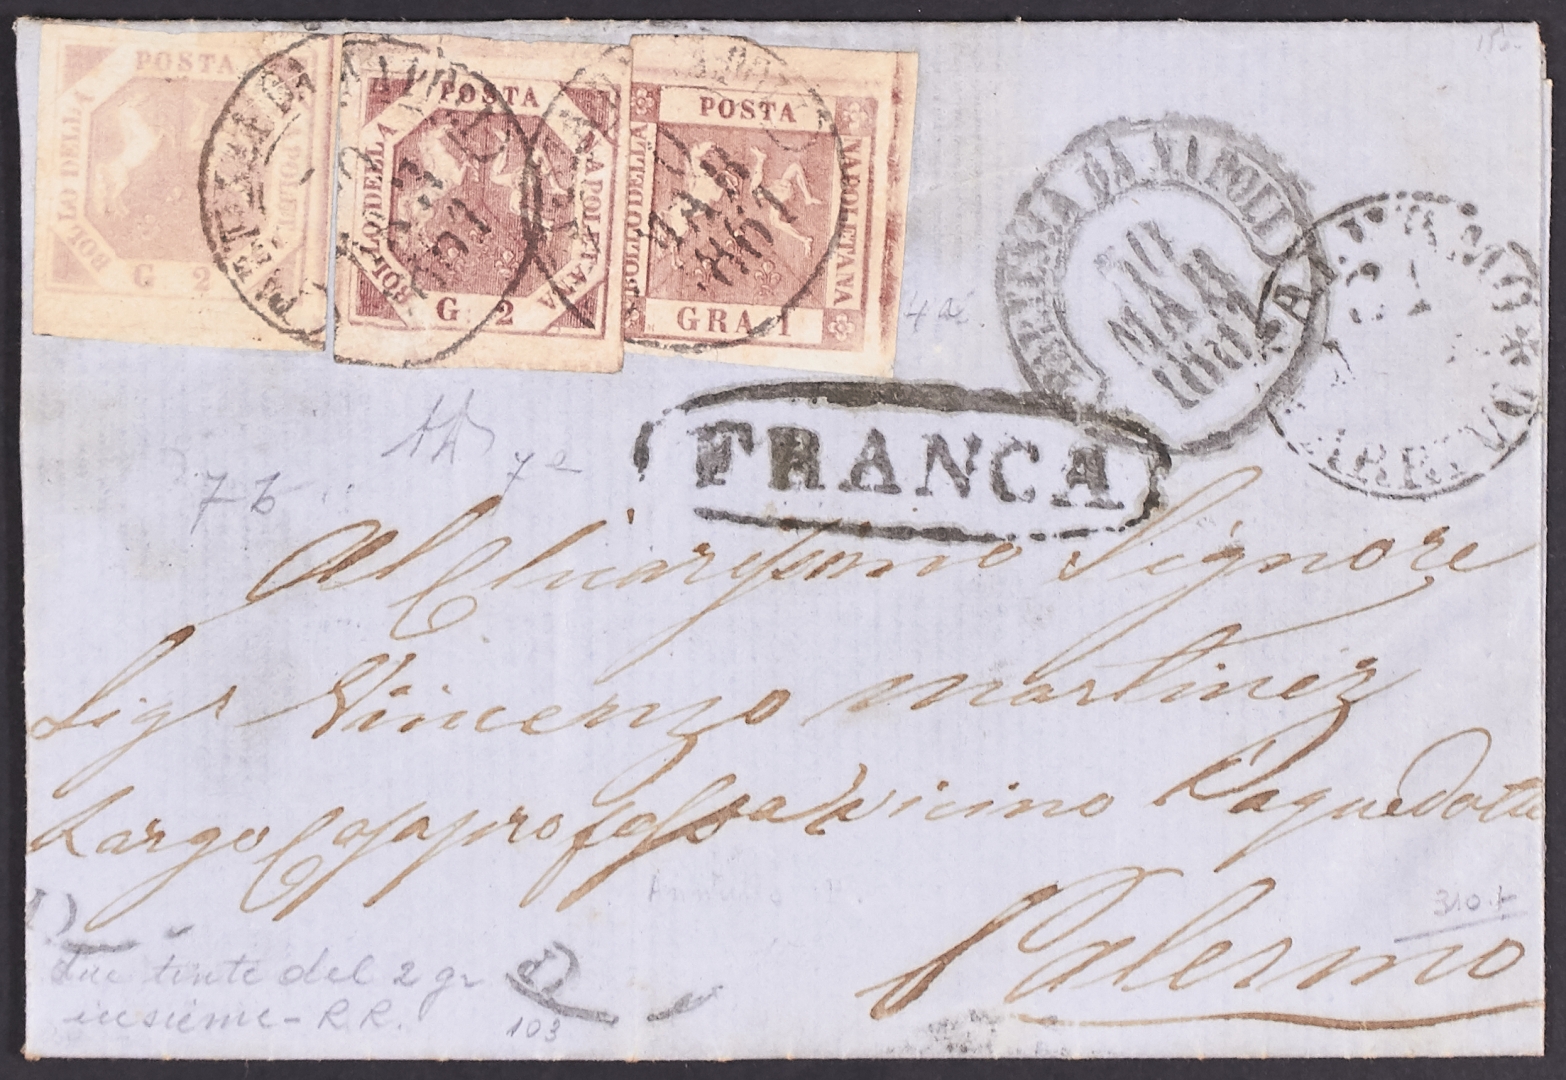 POSTA
BOLLO DELLA
G. 2
POSTA
BOLLO DELLA
NAPOLETANA
G. 2
POSTA
BOLLO DELLA
NAPOLETANA
GRA 1
MAR
1861
PARTENZA DA NAPOLI
10
MAR
1861
ARRIVO
FRANCA
4a
7b
7a
Al Chiarissimo Signore
Sigr Vincenzo Martinez
Largo Casa professa vicino
Palermo
310
due tinte del 2 gr
insieme - R.R.
103